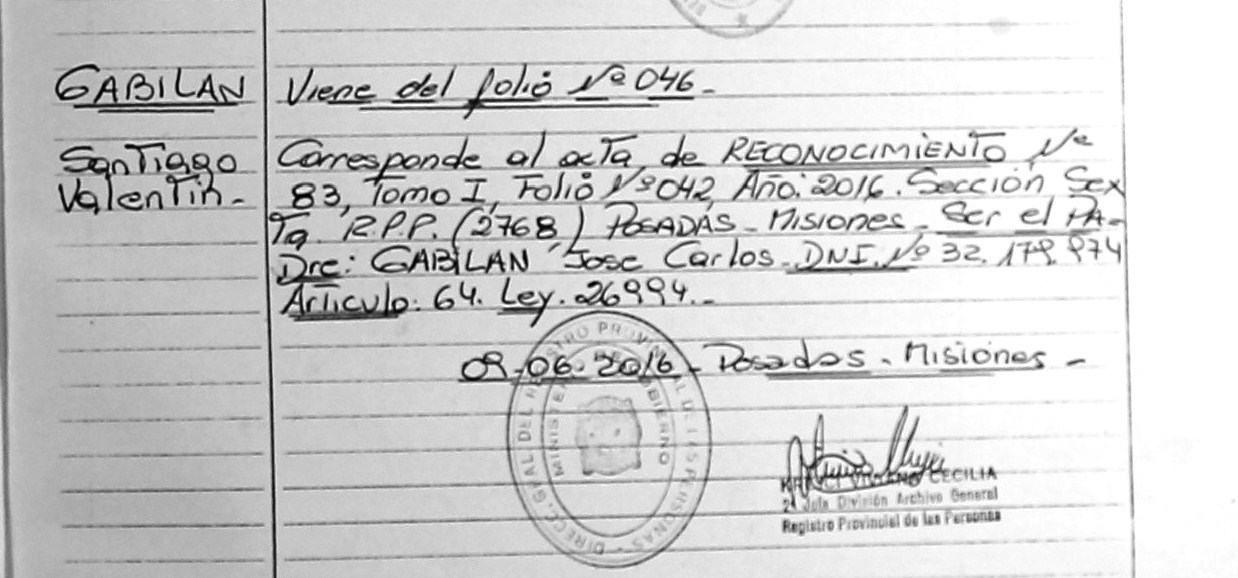 GABILAN
Santiago
Valentin.-
Viene del folio Nº 046.-
Corresponde al acta de RECONOCIMIENTO, Nº
83, Tomo I, Folio Nº 042, Año: 2016. Sección Sex
Ta. R.P.P. (2768) POSADAS - Misiones. Ser el PA-
Dre: GABILAN Jose Carlos. DNI. Nº 32.179.974
Articulo: 64. Ley. 26994.-
09-06-2016 - Posadas - Misiones -
DIRECC. GRAL DEL REGISTRO PROVINCIAL DE LAS PERSONAS
MINISTERIO DE GOBIERNO
CECILIA
2º Jefe División Archivo General
Registro Provincial de las Personas